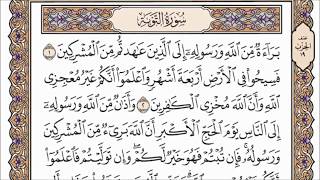 سُورَةُ التَّوْبَةِ
بَرَآءَةٌ مِّنَ اللَّهِ وَرَسُولِهِ إِلَى الَّذِينَ عَاهَدتُّم مِّنَ الْمُشْرِكِينَ ١
فَسِيحُوا فِي الْأَرْضِ أَرْبَعَةَ أَشْهُرٍ وَاعْلَمُوا أَنَّكُمْ غَيْرُ مُعْجِزِي
اللَّهِ وَأَنَّ اللَّهَ مُخْزِي الْكَافِرِينَ ٢ وَأَذَانٌ مِّنَ اللَّهِ وَرَسُولِهِ
إِلَى النَّاسِ يَوْمَ الْحَجِّ الْأَكْبَرِ أَنَّ اللَّهَ بَرِيءٌ مِّنَ الْمُشْرِكِينَ
وَرَسُولُهُ فَإِن تُبْتُمْ فَهُوَ خَيْرٌ لَّكُمْ وَإِن تَوَلَّيْتُمْ فَاعْلَمُوا